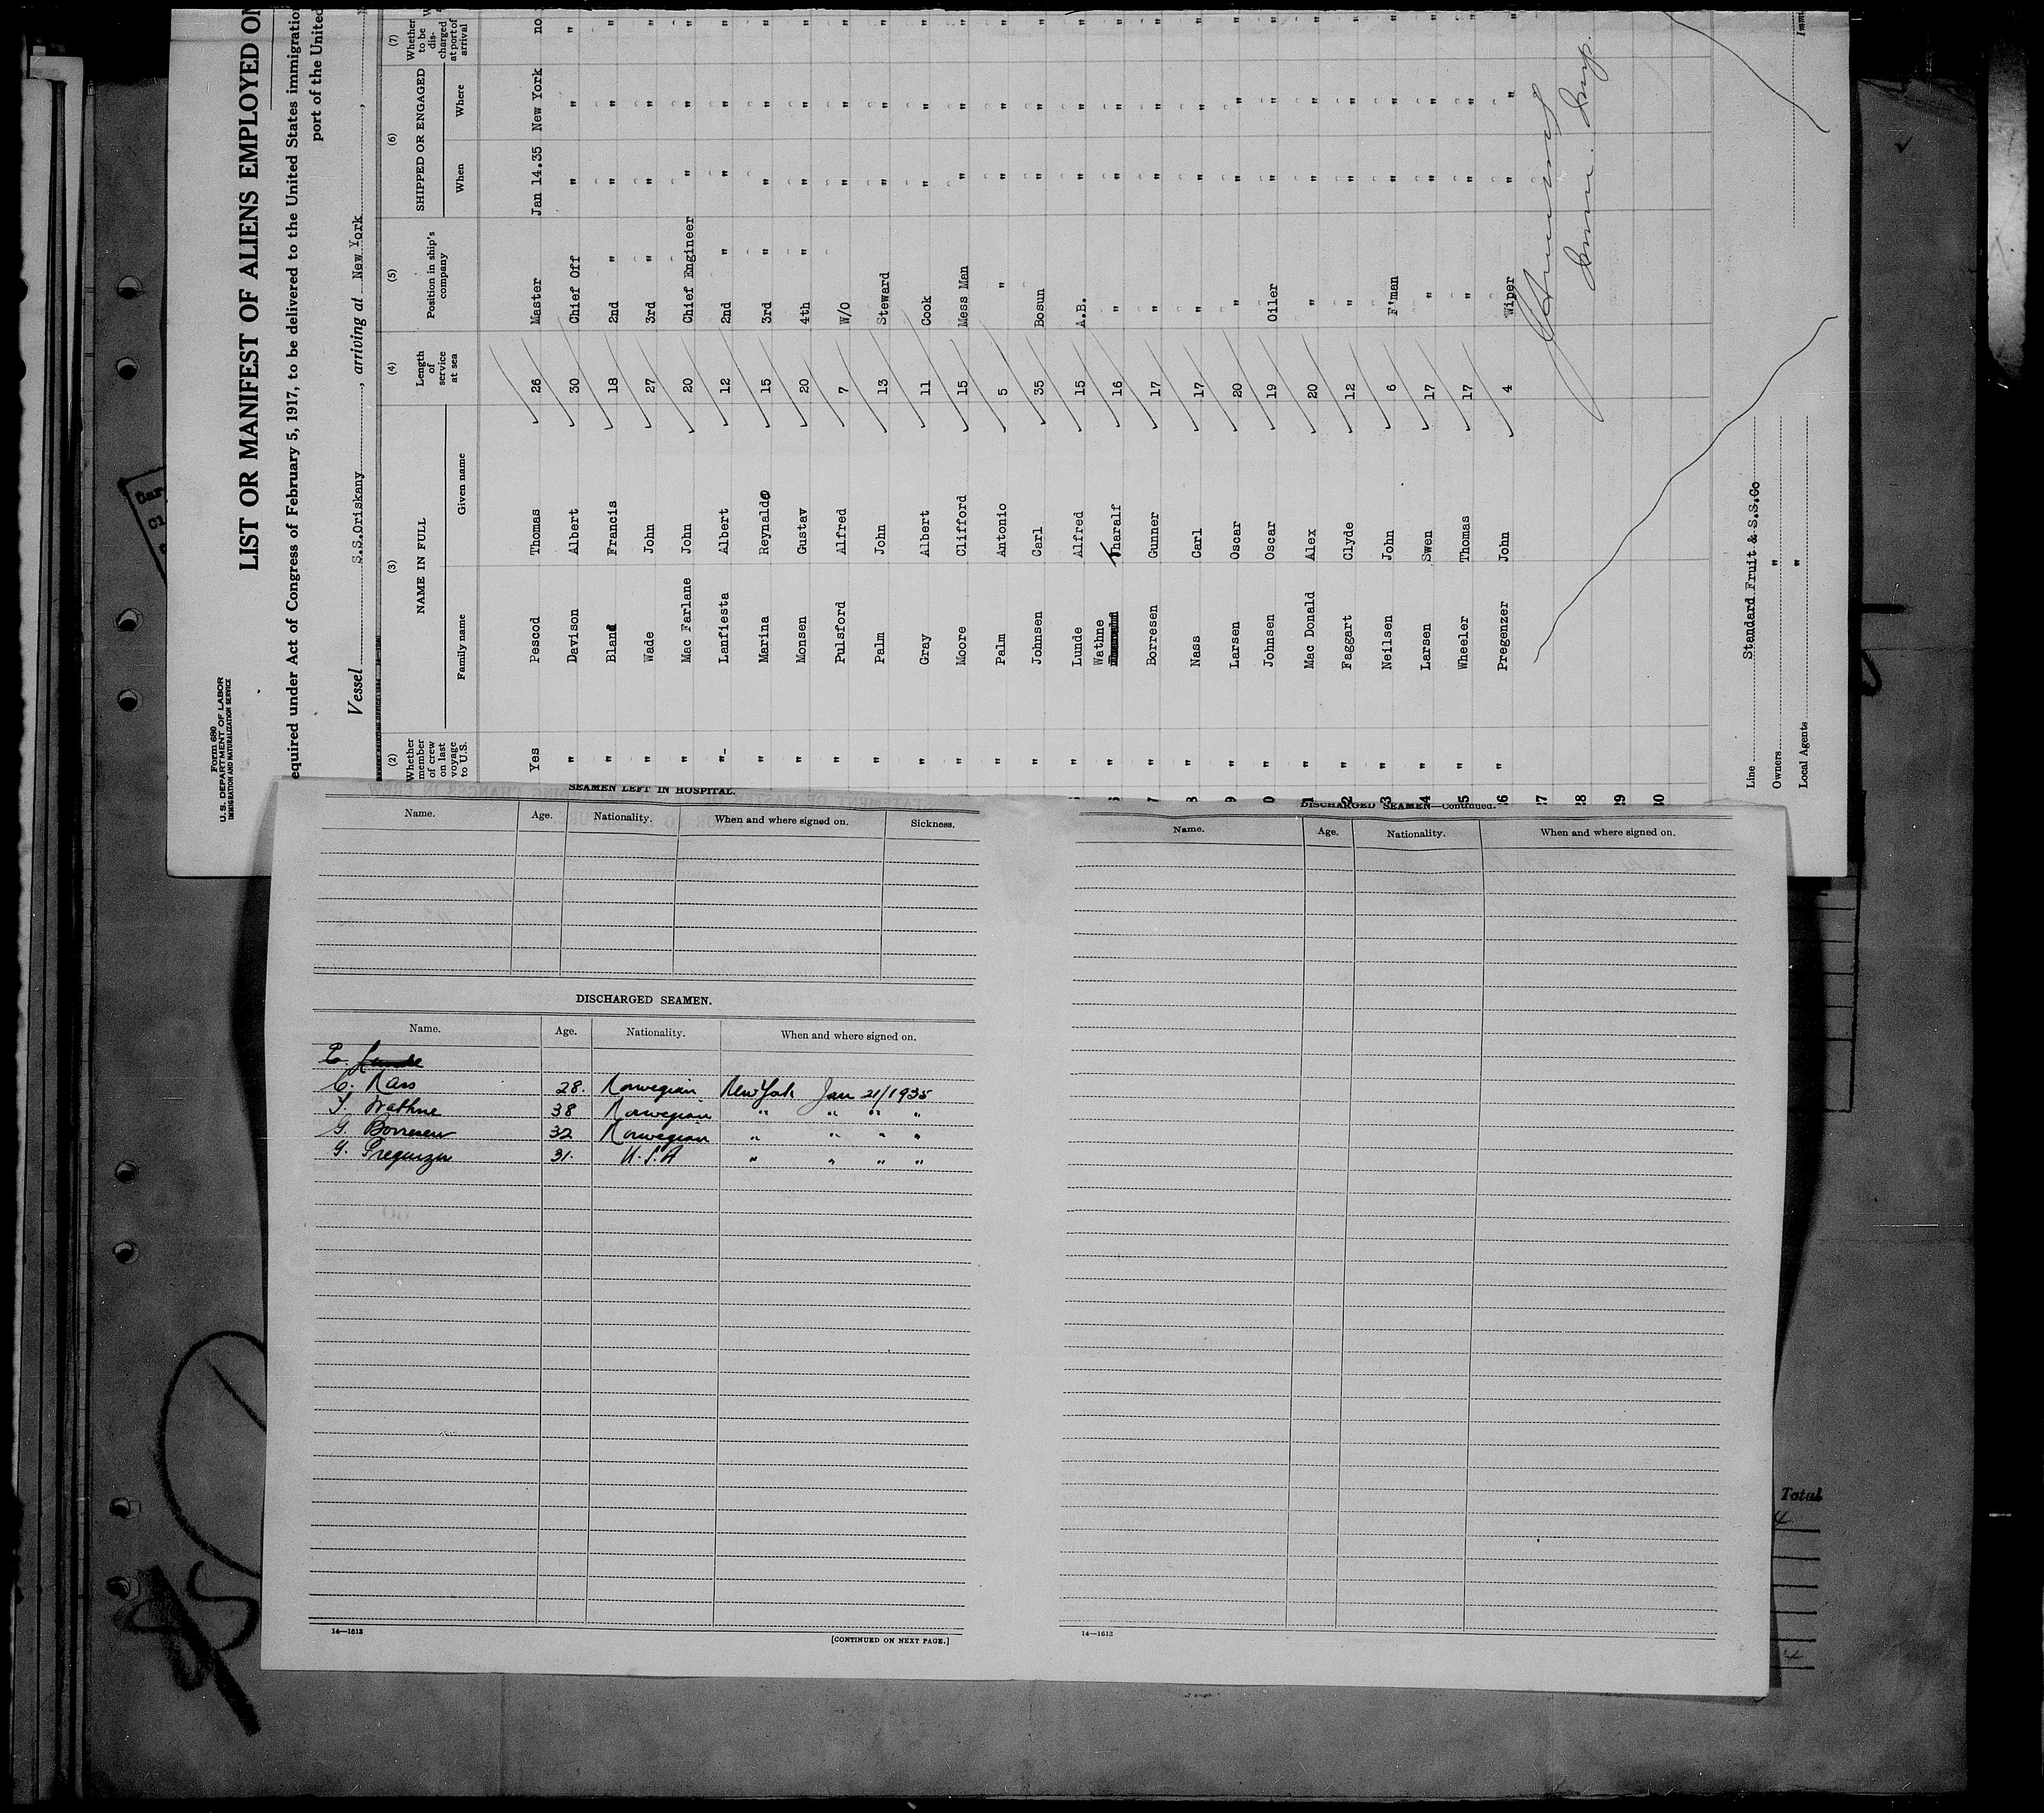 Form 680
U. S. DEPARTMENT OF LABOR
IMMIGRATION AND NATURALIZATION SERVICE
LIST OR MANIFEST OF ALIENS EMPLOYED ON
equired under Act of Congress of February 5, 1917, to be delivered to the United States immigratio
port of the United
Vessel S.S.Oriskany, arriving at New York,
(2) Whether member of crew on last voyage to U.S. (3) NAME IN FULL Family name Given name (4) Length of service at sea (5) Position in ship's company (6) SHIPPED OR ENGAGED When Where (7) Whether to be discharged at port of arrival
Yes Pescod Thomas 26 Master Jan 14.35 New York no
" Davison Albert 30 Chief Off " " "
" Bland Francis 18 2nd " " " "
" Wade John 27 3rd " " " "
" Mac Farlane John 20 Chief Engineer " " "
" Lanfiesta Albert 12 2nd " " " "
" Marina Reynaldo 15 3rd " " " "
" Monsen Gustav 20 4th " " " "
" Pulsford Alfred 7 W/O " " "
" Palm John 13 Steward " " "
" Gray Albert 11 Cook " " "
" Moore Clifford 15 Mess Man " " "
" Palm Antonio 5 " " " "
" Johnsen Carl 35 Bosun " " "
" Lunde Alfred 15 A.B. " " "
" Wathne Tharalf 16 " " " "
7 " Borresen Gunner 17 " " " "
8 " Nass Carl 17 " " " "
9 " Larsen Oscar 20 " " " "
0 " Johnsen Oscar 19 Oiler " " "
1 " Mac Donald Alex 20 " " " "
2 " Faggart Clyde 12 " " " "
3 " Neilsen John 6 F'man " " "
4 " Larsen Swen 17 " " " "
5 " Wheeler Thomas 17 " " " "
6 " Pregenzer John 4 Wiper " " "
27
28
29
30
Imm. Insp.
Line Standard Fruit & S.S.Co
Owners "
Local Agents "
SEAMEN LEFT IN HOSPITAL.
Name. Age. Nationality. When and where signed on. Sickness.
DISCHARGED SEAMEN.
Name. Age. Nationality. When and where signed on.
E. Lunde
C. Nass 28. Norwegian New York Jan 21/1935
T. Wathne 38 Norwegian " " " "
G. Borresen 32 Norwegian " " " "
G. Pregenzer 31. U.S.A " " " "
14—1613
[CONTINUED ON NEXT PAGE.]
DISCHARGED SEAMEN—Continued.
Name. Age. Nationality. When and where signed on.
14—1613
Total
4
4